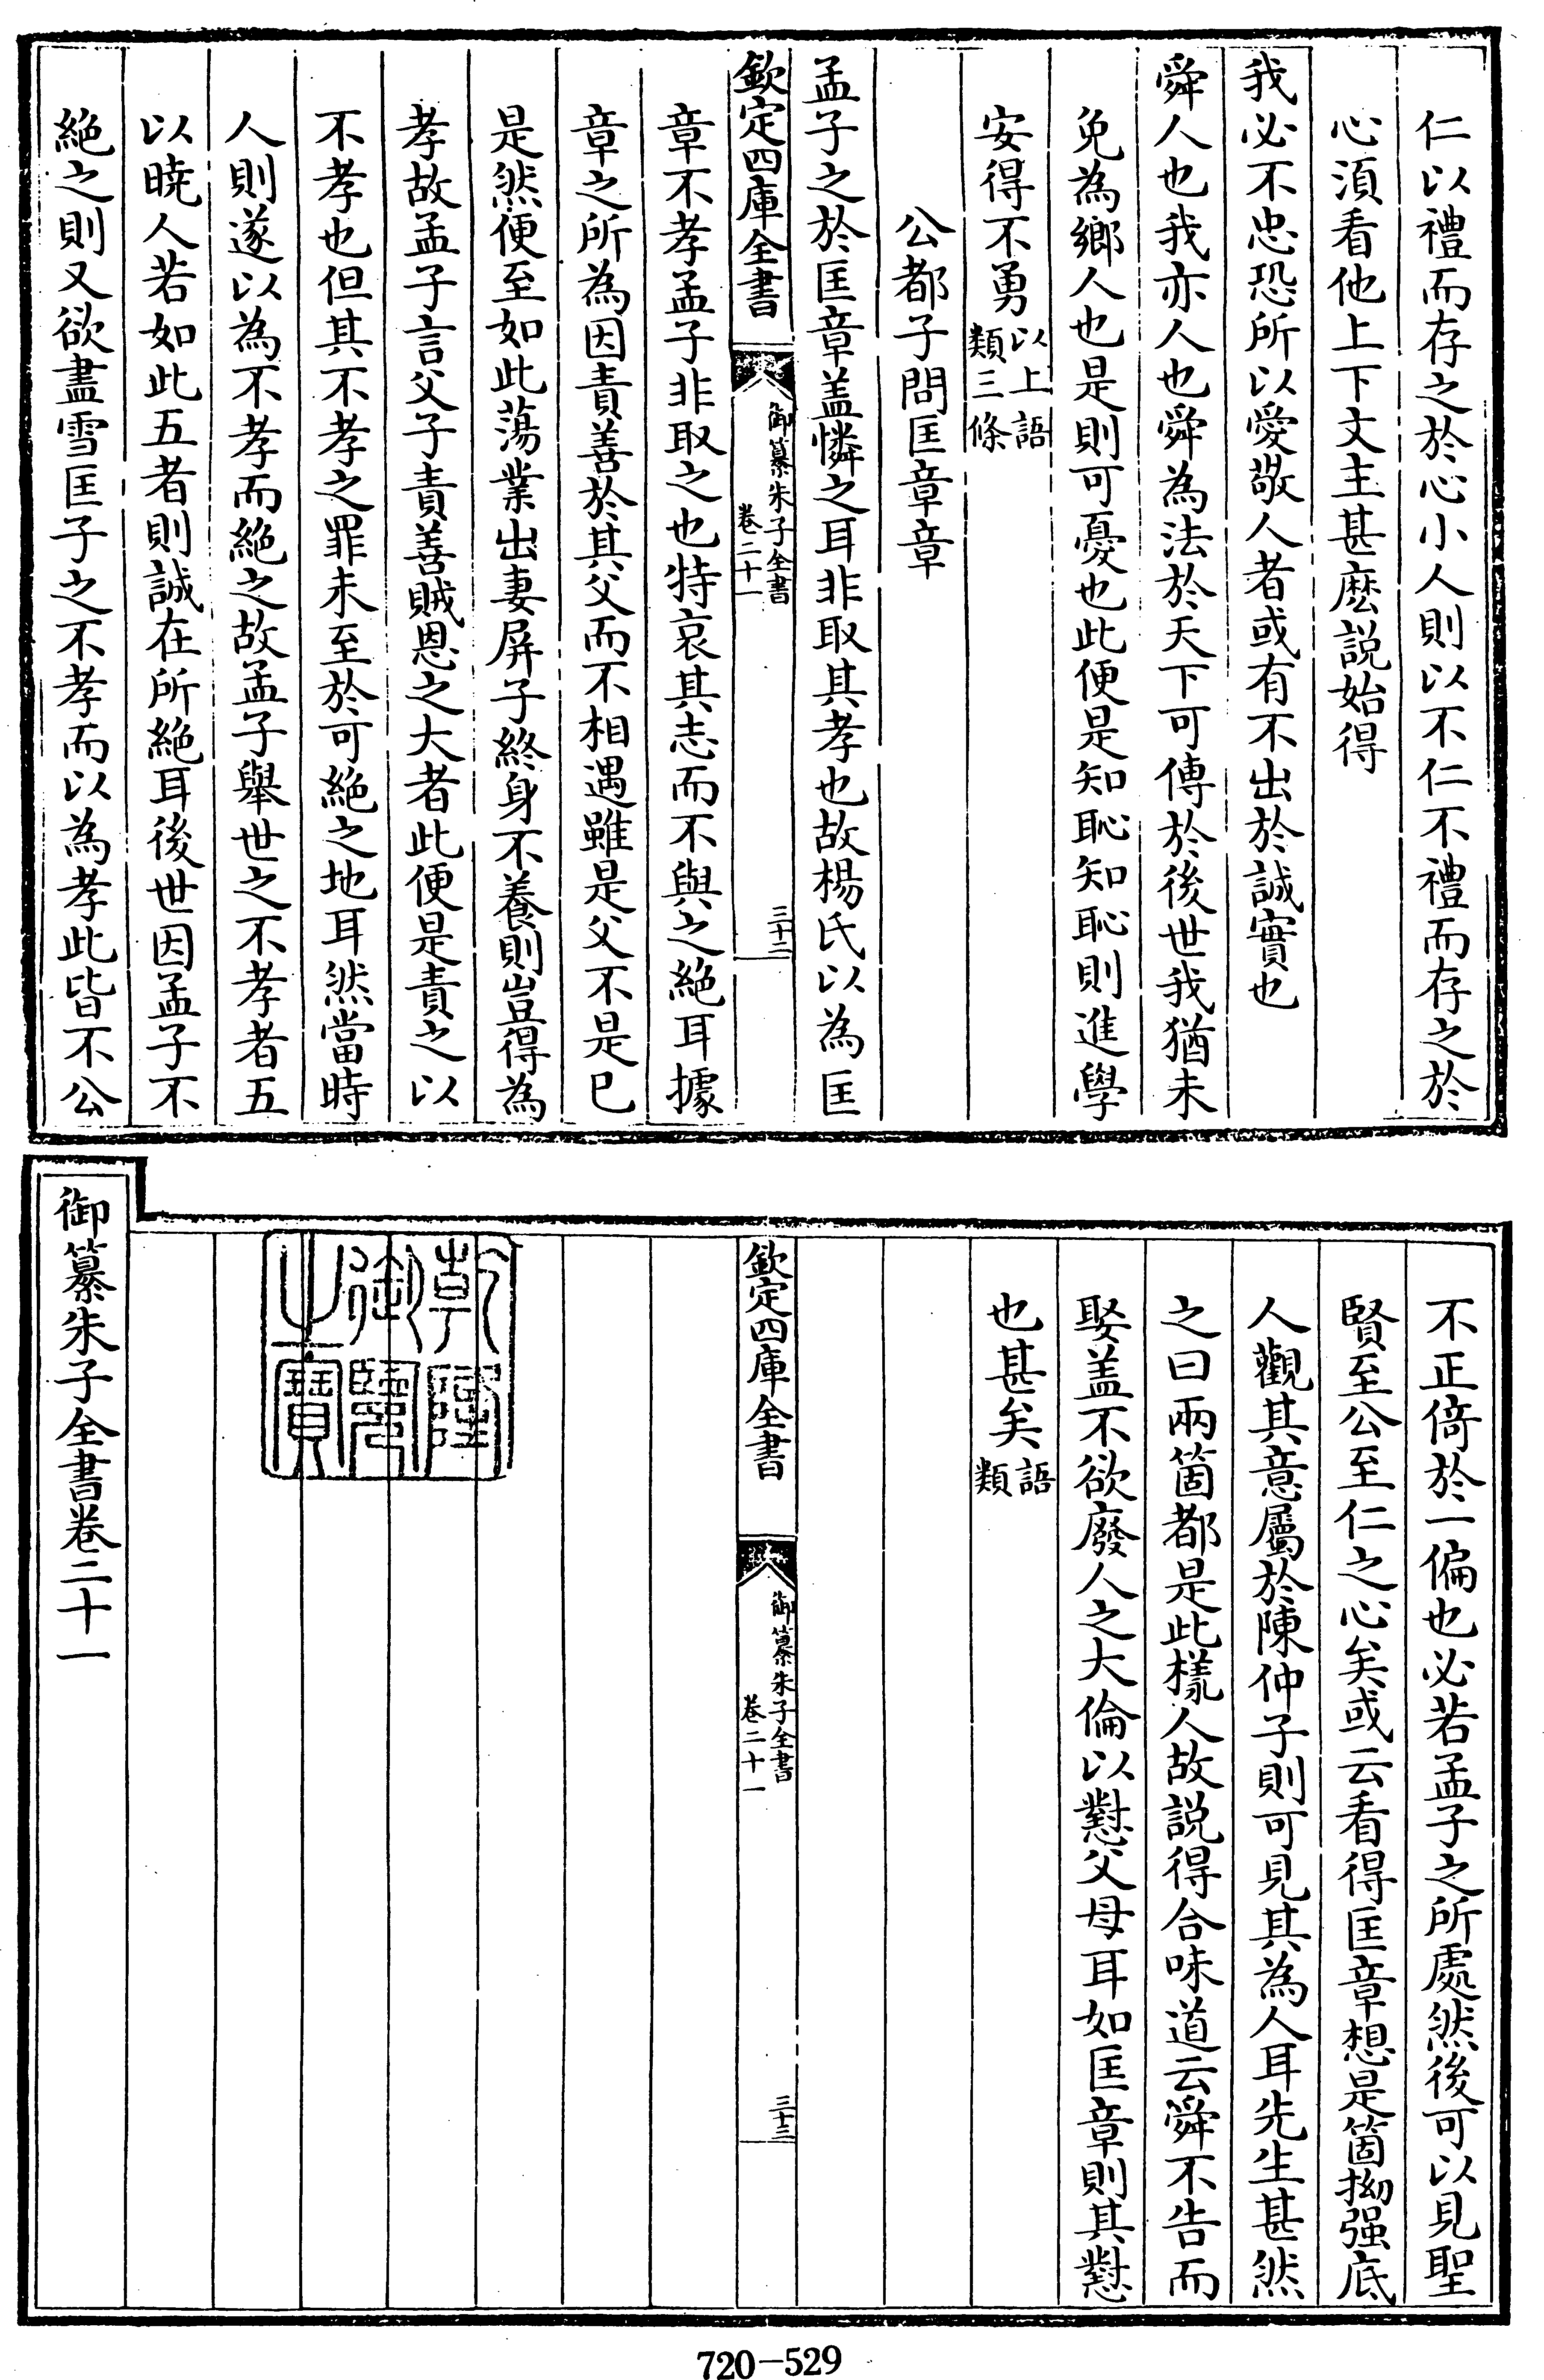 仁以禮而存之於心小人則以不仁不禮而存之於
心須看他上下文主甚麽説始得
我必不忠恐所以愛敬人者或有不出於誠實也
舜人也我亦人也舜為法於天下可傳於後世我猶未
免為鄉人也是則可憂也此便是知恥知恥則進學
安得不勇以上語類三條
公都子問匡章章
孟子之於匡章盖憐之耳非取其孝也故楊氏以為匡
欽定四庫全書
御纂朱子全書
卷二十一
三十二
章不孝孟子非取之也特哀其志而不與之絶耳據
章之所為因責善於其父而不相遇雖是父不是已
是然便至如此蕩業出妻屏子終身不養則豈得為
孝故孟子言父子責善賊恩之大者此便是責之以
不孝也但其不孝之罪未至於可絶之地耳然當時
人則遂以為不孝而絶之故孟子舉世之不孝者五
以曉人若如此五者則誠在所絶耳後世因孟子不
絶之則又欲盡雪匡子之不孝而以為孝此皆不公
不正倚於一偏也必若孟子之所處然後可以見聖
賢至公至仁之心矣或云看得匡章想是箇拗强底
人觀其意屬於陳仲子則可見其為人耳先生甚然
之曰兩箇都是此樣人故説得合味道云舜不告而
娶盖不欲廢人之大倫以懟父母耳如匡章則其懟
也甚矣語類
欽定四庫全書
御纂朱子全書
卷二十一
三十三
乾隆御覽之寶
御纂朱子全書卷二十一
720-529